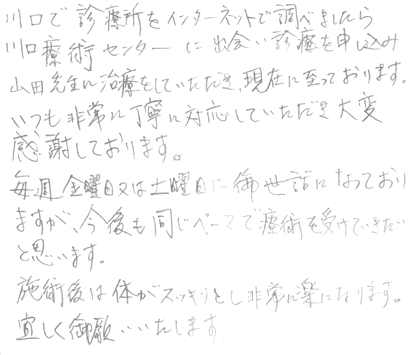 川口で診療所をインターネットで調べましたら
川口療術センターに出会い診療を申込み
山田先生に治療をしていただき、現在に至っております。
いつも非常に丁寧に対応していただき大変
感謝しております。
毎週金曜日又は土曜日に御世話になっており
ますが、今後も同じペースで療術を受けていきたい
と思います。
施術後は体がスッキリとし非常に楽になります。
宜しく御願いいたします